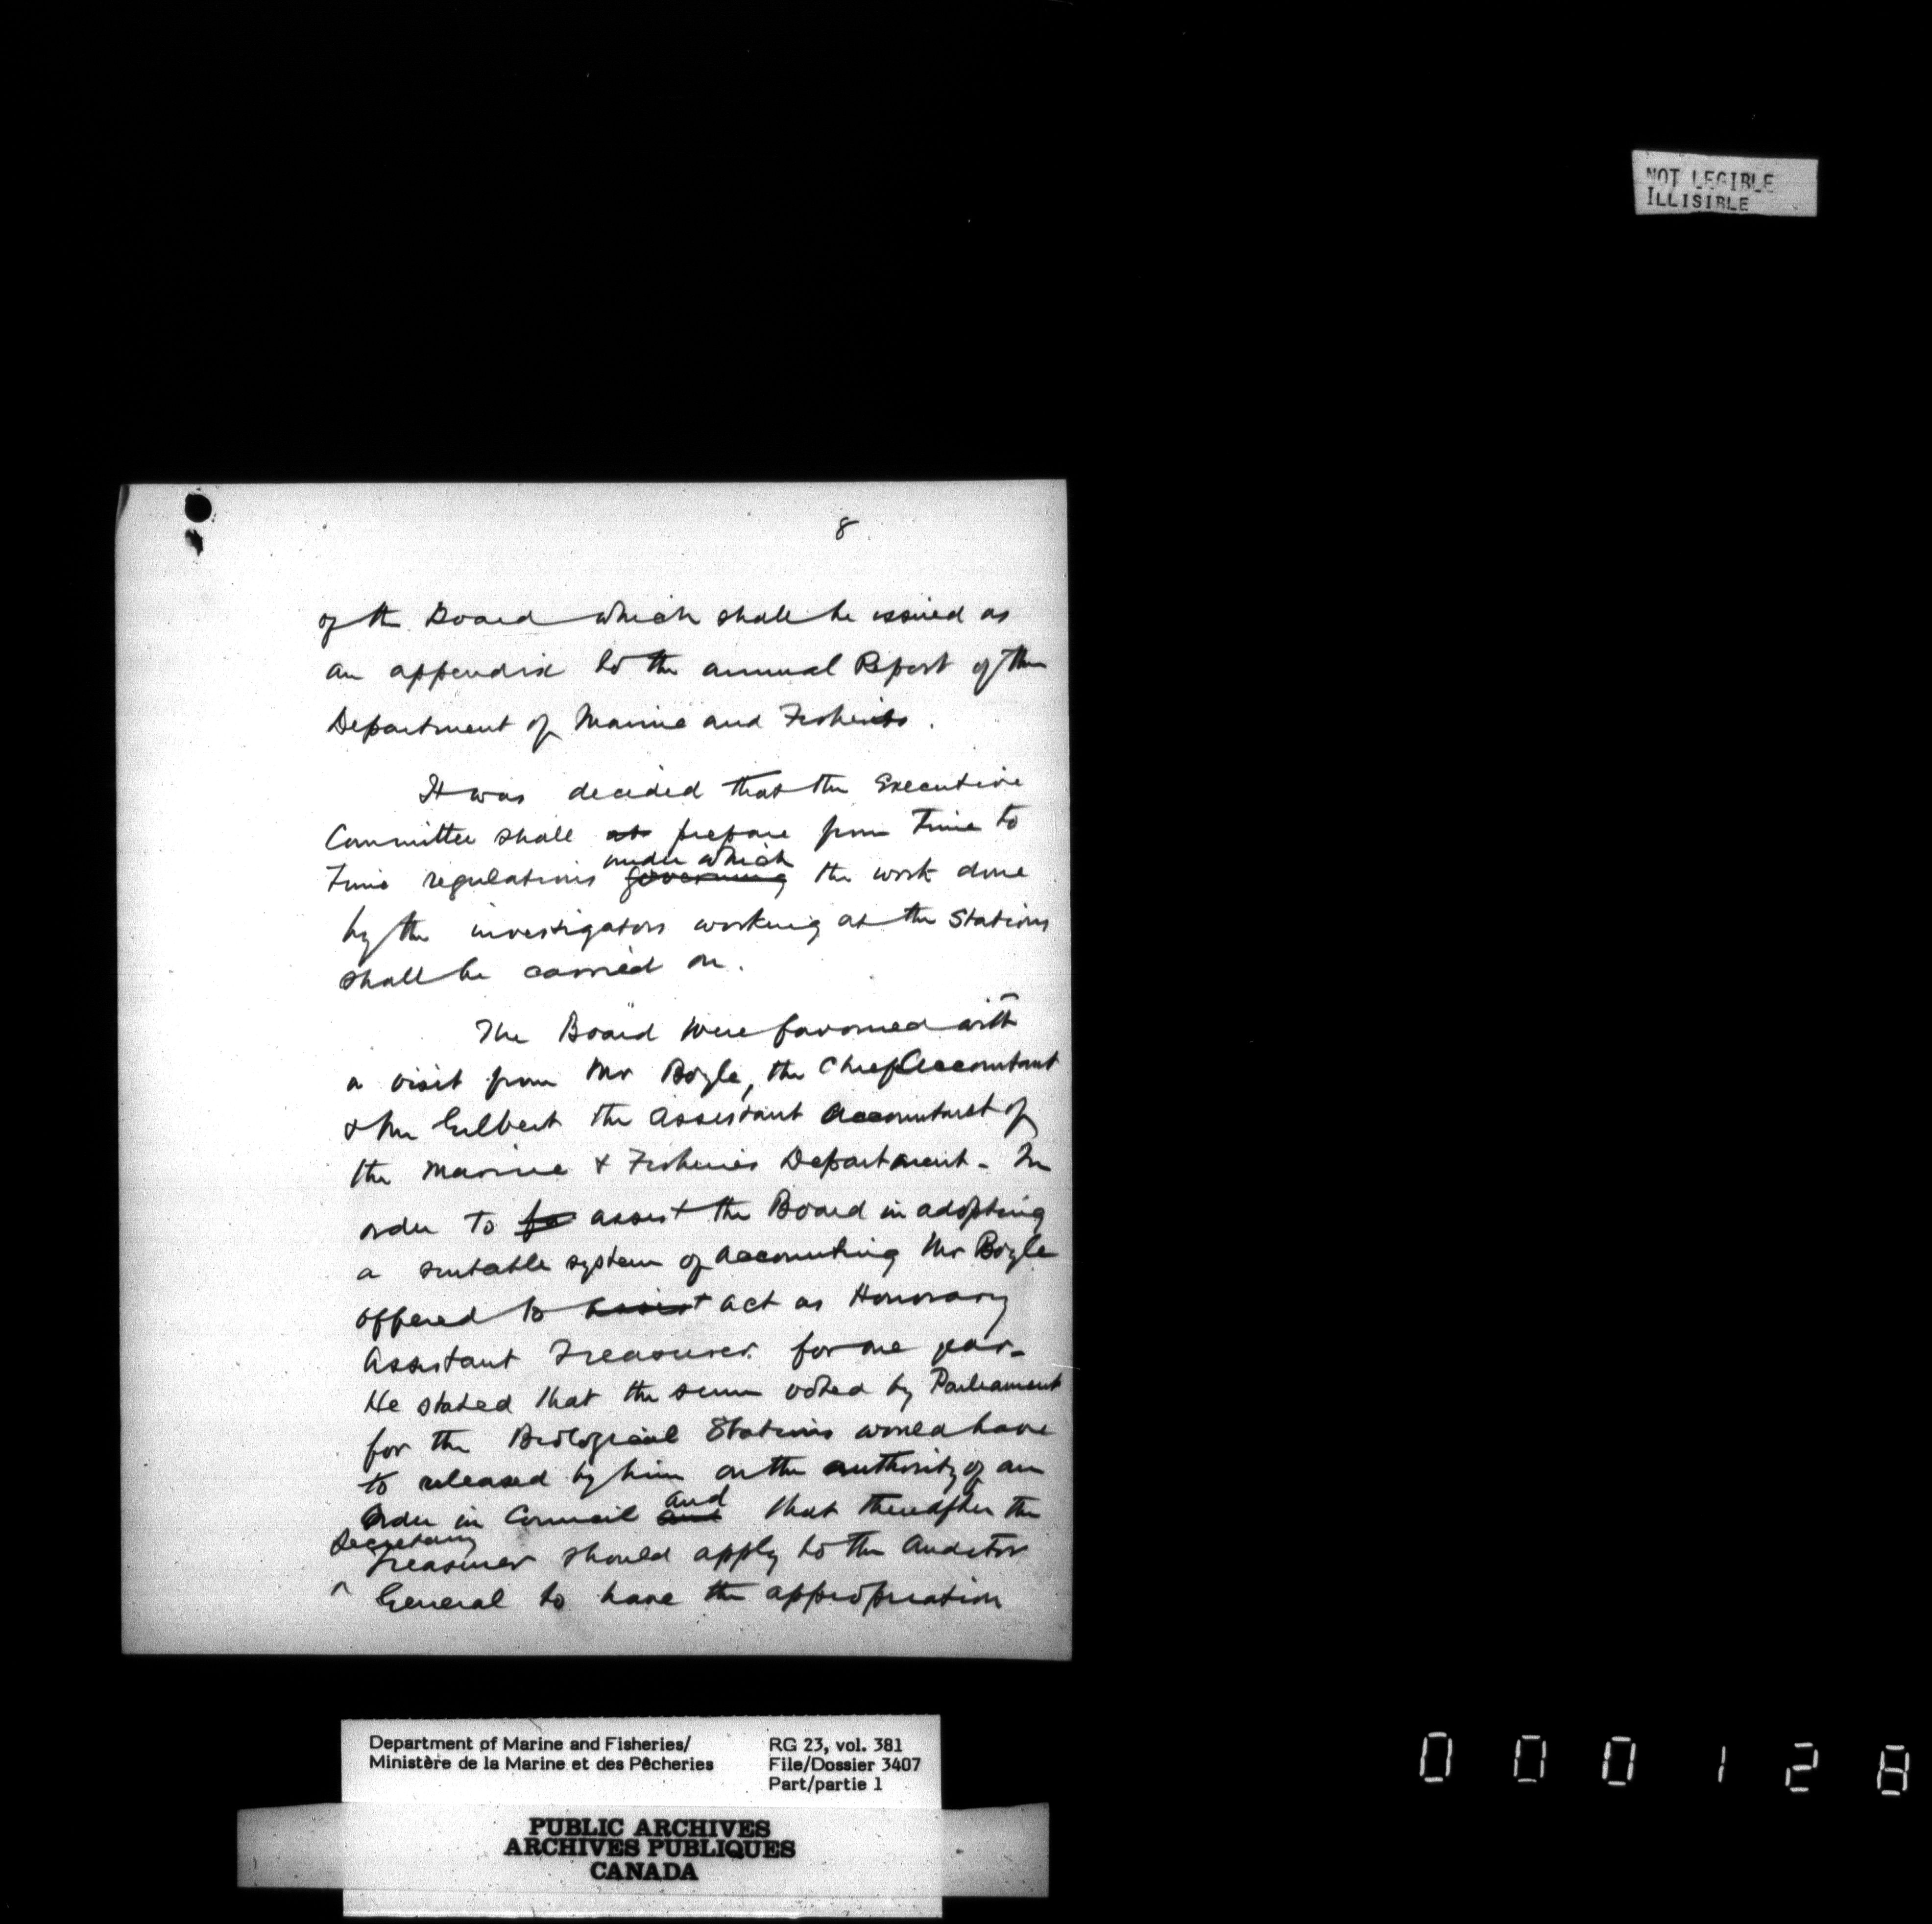 NOT LEGIBLE
ILLISIBLE
8
of the Board which shall be issued as
an appendix to the annual Report of the
Department of Marine and Fisheries.
It was decided that the Executive
Committee shall at prepare from time to
under which
time regulations governing the work done
by the investigators working at the Stations
shall be carried on.
The Board were favoured with
a visit from Mr Boyle, the Chief Accountant
& Mr Gilbert the Assistant Accountant of
the Marine & Fisheries Department. In
order to fa assist the Board in adopting
a suitable system of accounting Mr Boyle
offered to assist act as Honorary
Assistant Treasurer for one year.
He stated that the sum voted by Parliament
for the Biological Stations would have
to released by him on the authority of an
and
Order in Council and that thereafter the
Secretary
^ Treasurer should apply to the Auditor
General to have the appropriation
Department of Marine and Fisheries/ RG 23, vol. 381
Ministère de la Marine et des Pêcheries File/Dossier 3407
Part/partie 1
PUBLIC ARCHIVES
ARCHIVES PUBLIQUES
CANADA
0 0 0 1 2 8